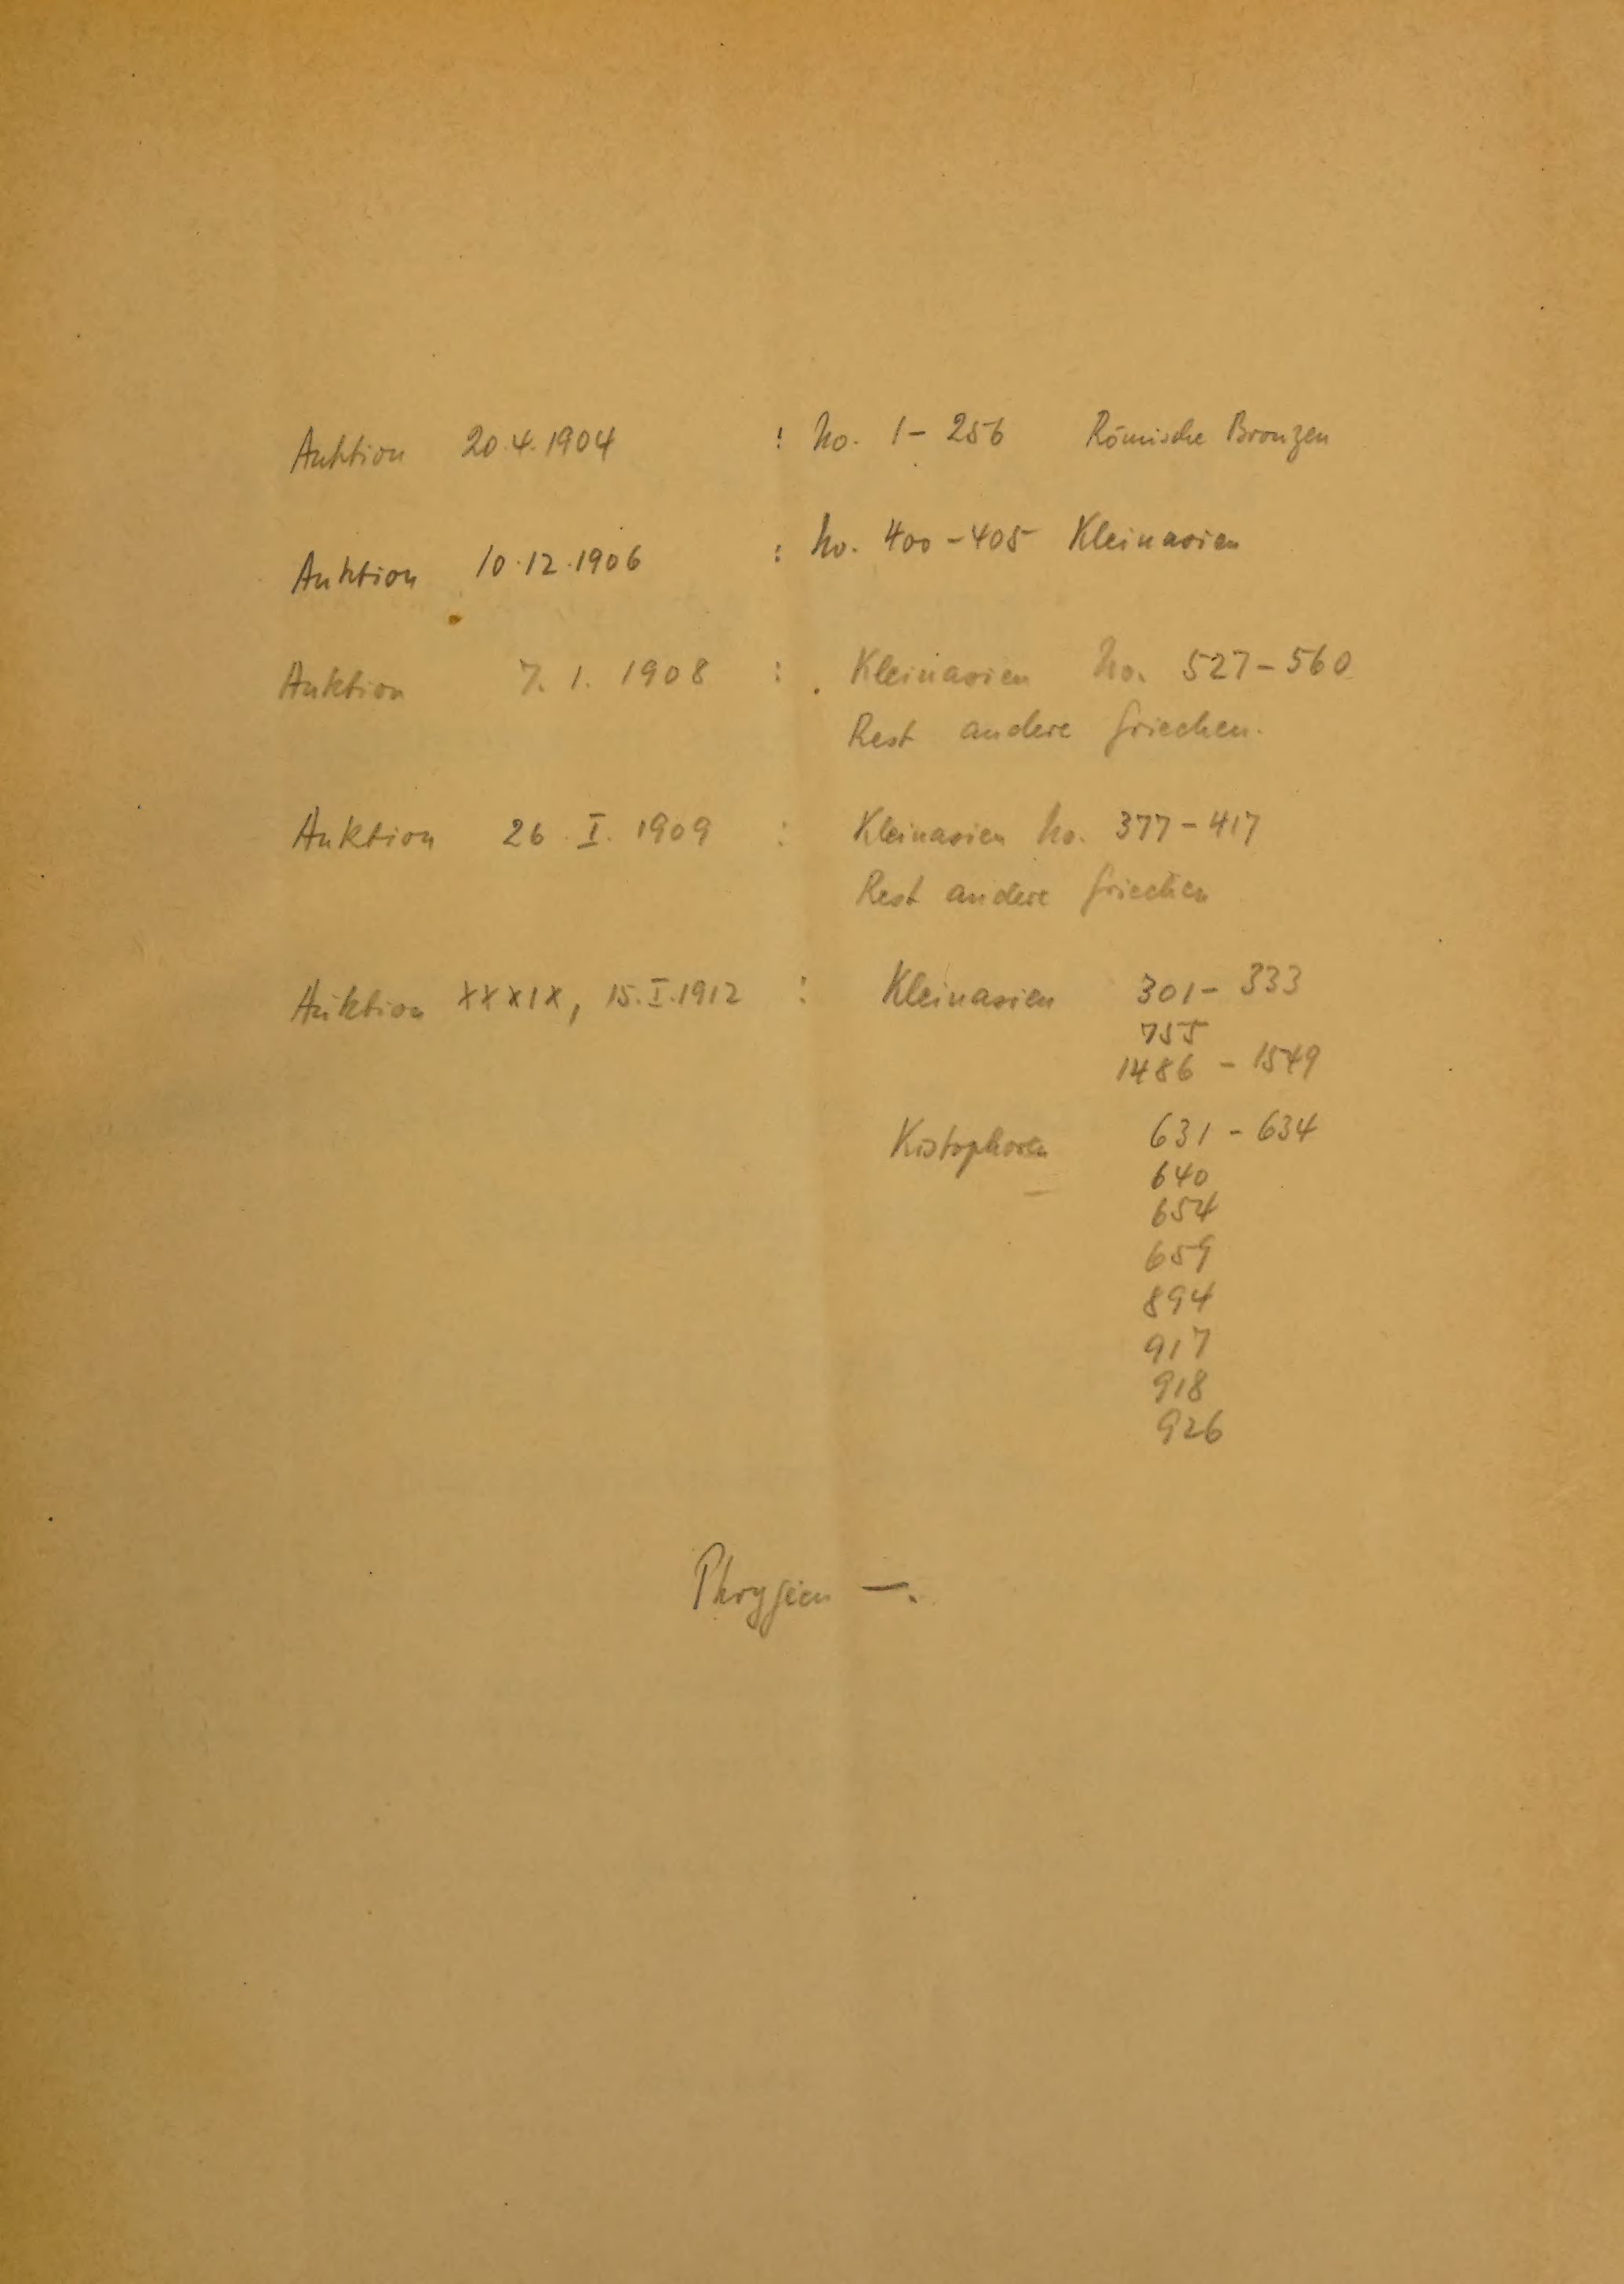 Auktion 20.4.1904 : No. 1-256 Römische Bronzen
Auktion 10.12.1906 : No. 400-405 Kleinasien
Auktion 7.1.1908 : Kleinasien No. 527-560
Rest andere Griechen.
Auktion 26.I.1909 : Kleinasien No. 377-417
Rest andere Griechen
Auktion XXXIX, 15.I.1912 : Kleinasien 301-333
755
1486-1549
Kistophoren 631-634
640
654
659
894
917
918
926
Phrygien —.